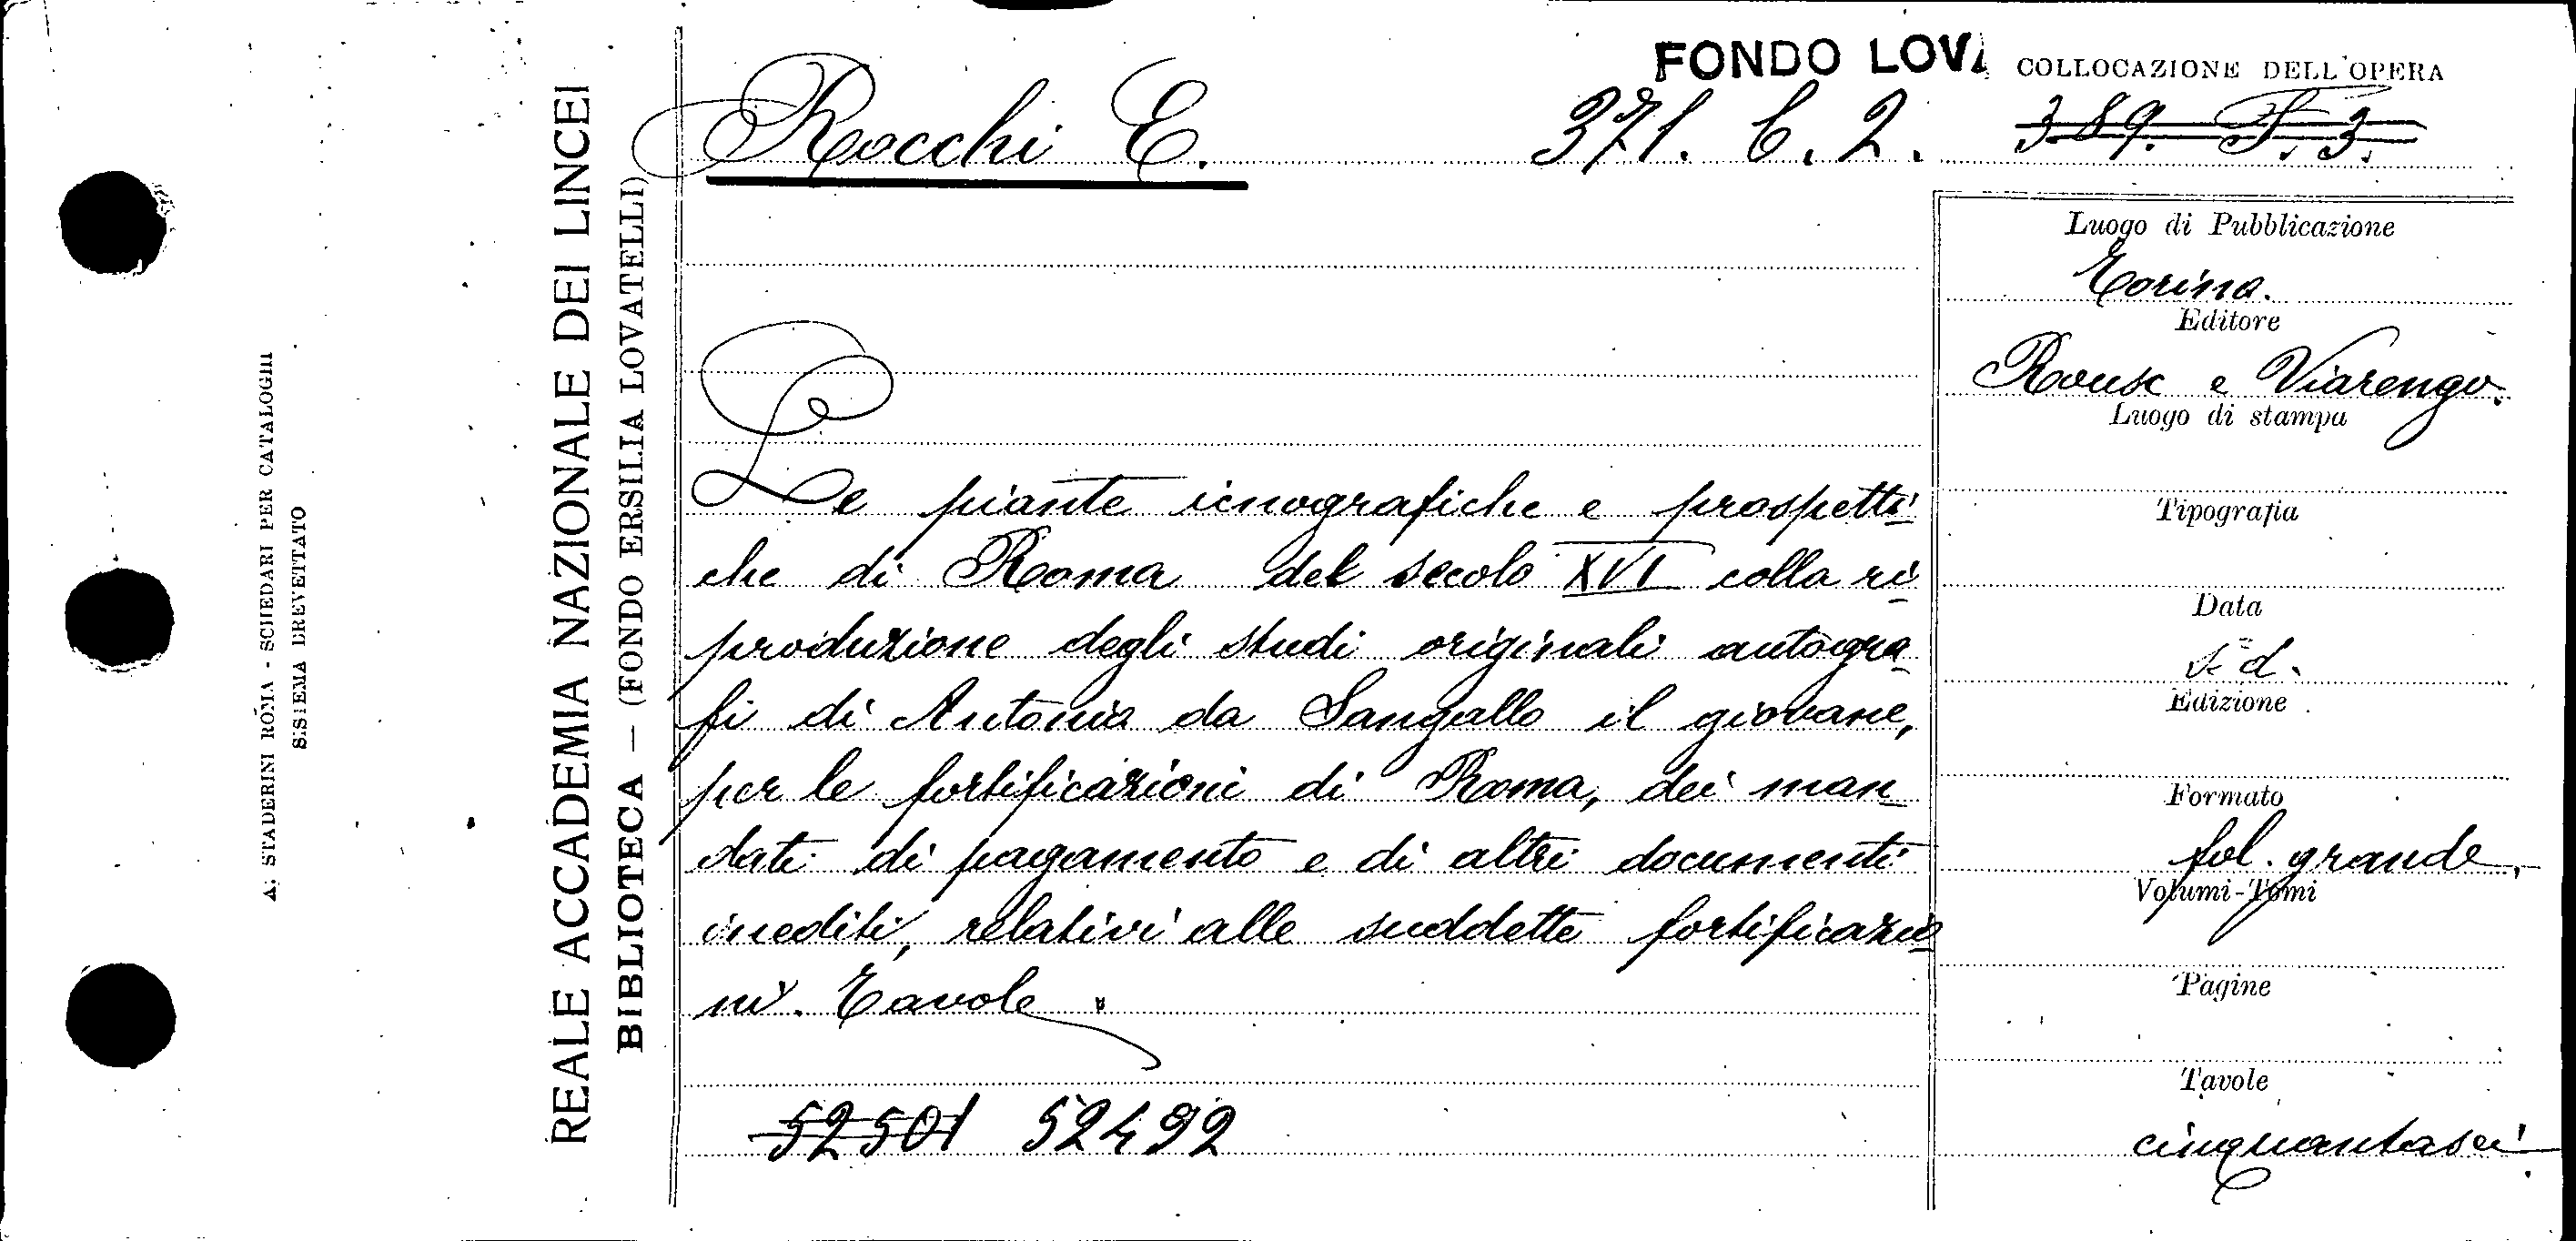 FONDO LOVA
COLLOCAZIONE DELL'OPERA
Rocchi E.
371. C. 2.
389. F. 3.
Le piante icnografiche e prospetti-
che di Roma del secolo XVI colla ri-
produzione degli studi originali autogra-
fi di Antonio da Sangallo il giovane,
per le fortificazioni di Roma, dei man-
dati di pagamento e di altri documenti
inediti, relativi alle suddette fortificazio-
ni. Tavole.
52501 52492
Luogo di Pubblicazione
Torino.
Editore
Roux e Viarengo.
Luogo di stampa
Tipografia
Data
s. d.
Edizione
Formato
fol. grande
Volumi-Tomi
Pagine
Tavole
cinquantasei
REALE ACCADEMIA NAZIONALE DEI LINCEI
BIBLIOTECA — (FONDO ERSILIA LOVATELLI)
A. STADERINI ROMA - SCHEDARI PER CATALOGHI
SISTEMA BREVETTATO